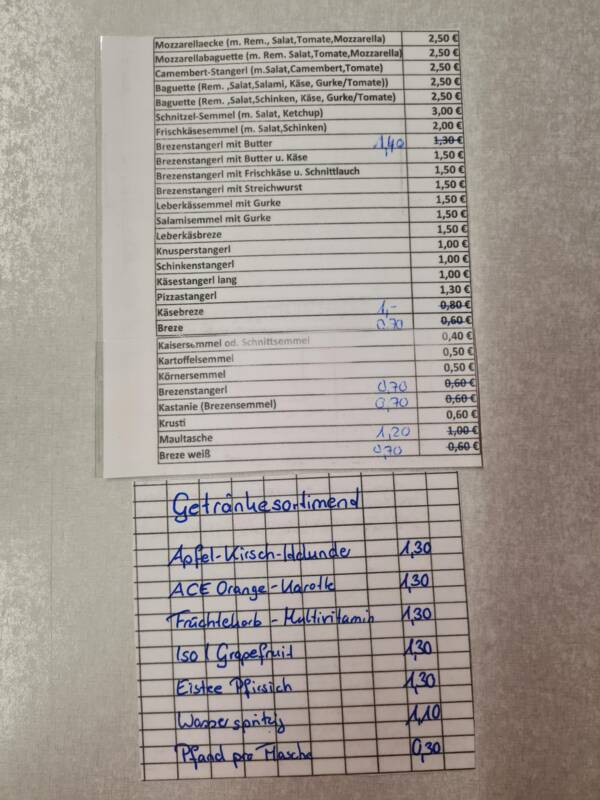 Mozzarellaecke (m. Rem., Salat,Tomate,Mozzarella) 2,50 €
Mozzarellabaguette (m. Rem. Salat,Tomate,Mozzarella) 2,50 €
Camembert-Stangerl (m.Salat,Camembert,Tomate) 2,50 €
Baguette (Rem. ,Salat,Salami, Käse, Gurke/Tomate)) 2,50 €
Baguette (Rem. ,Salat,Schinken, Käse, Gurke/Tomate) 2,50 €
Schnitzel-Semmel (m. Salat, Ketchup) 3,00 €
Frischkäsesemmel (m. Salat,Schinken) 2,00 €
Brezenstangerl mit Butter 1,40 1,30 €
Brezenstangerl mit Butter u. Käse 1,50 €
Brezenstangerl mit Frischkäse u. Schnittlauch 1,50 €
Brezenstangerl mit Streichwurst 1,50 €
Leberkässemmel mit Gurke 1,50 €
Salamisemmel mit Gurke 1,50 €
Leberkäsbreze 1,50 €
Knusperstangerl 1,00 €
Schinkenstangerl 1,00 €
Käsestangerl lang 1,00 €
Pizzastangerl 1,30 €
Käsebreze 1,- 0,80 €
Breze 0,70 0,60 €
Kaisersemmel od. Schnittsemmel 0,40 €
Kartoffelsemmel 0,50 €
Körnersemmel 0,50 €
Brezenstangerl 0,70 0,60 €
Kastanie (Brezensemmel) 0,70 0,60 €
Krusti 0,60 €
Maultasche 1,20 1,00 €
Breze weiß 0,70 0,60 €
Getränkesortimend
Apfel-Kirsch- 1,30
ACE Orange-Karotte 1,30
Früchtekorb - Multivitamin 1,30
Iso Grapefruit 1,30
Eistee Pfirsich 1,30
Wasser spritzig 1,10
Pfand pro Flasche 0,30